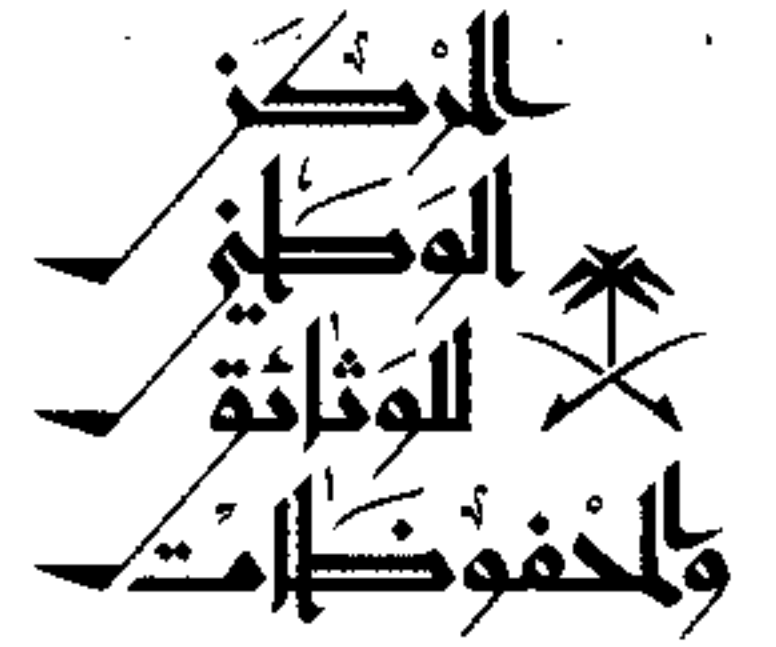 المركز
الوطني
للوثائق
والمحفوظات